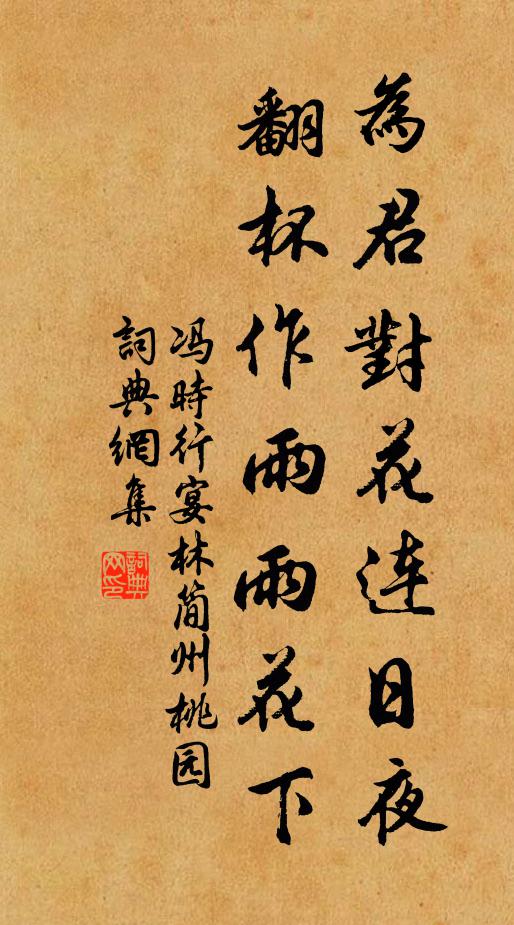 為君對花连日夜
翻杯作雨雨花下
冯時行宴林简州桃园
詞典網集
詞典
网印